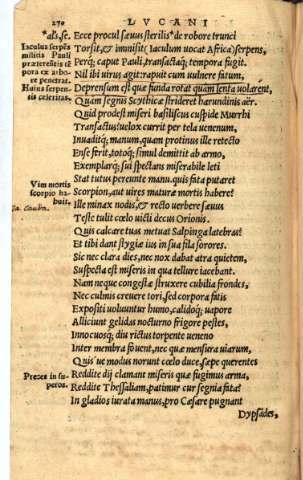 270 LVCANI
*als, se. Ecce procul sæuus sterilis* de robore trunci
Iaculus serpẽs Torsit, & immisit (Iaculum uocat Africa) serpens,
militis Pauli
Perq; caput Pauli, transactaq; tempora fugit.
præteriens tẽ
pora ex arbo
re penetrat. Nil ibi virus agit: rapuit cum vulnere fatum,
Huius serpen- Deprensum est quæ funda rotat quam lenta volarent,
tis celeritas. Quàm segnis Scythicæ strideret harundinis aër.
Quid prodest miseri basiliscus cuspide Murrhi
Transactus? uelox currit per tela venenum,
Inuaditq; manum, quam protinus ille retecto
Ense ferit, totoq; simul demittit ab armo,
Exemplarq; sui spectans miserabile leti
Stat tutus pereunte manu. quis fata putaret
Vim mortis Scorpion, aut uires maturæ mortis habere?
scorpio ha-
buit, Ille minax nodis, & recto uerbere sæuus
Teste tulit cœlo uicti decus Orionis.
Quis calcare tuas metuat Salpinga latebras?
Et tibi dant stygiæ ius in sua fila sorores.
Sic nec clara dies, nec nox dabat atra quietem,
Suspecta est miseris in qua tellure iacebant.
Nam neque congestæ struxere cubilia frondes,
Nec culmis creuere tori, sed corpora fatis
Expositi uoluuntur humo, calidoq; uapore
Alliciunt gelidas nocturno frigore pestes,
Innocuosq; diu rictus torpente ueneno
Inter membra fouent, nec quæ mensura uiarum,
Quis'ue modus norunt cœlo duce, sæpe querentes
Preces in su- Reddite dij clamant miseris quæ fugimus arma,
peros. Reddite Thessaliam, patimur cur segnia fata?
In gladios iurata manus, pro Cæsare pugnant
Dypsades,